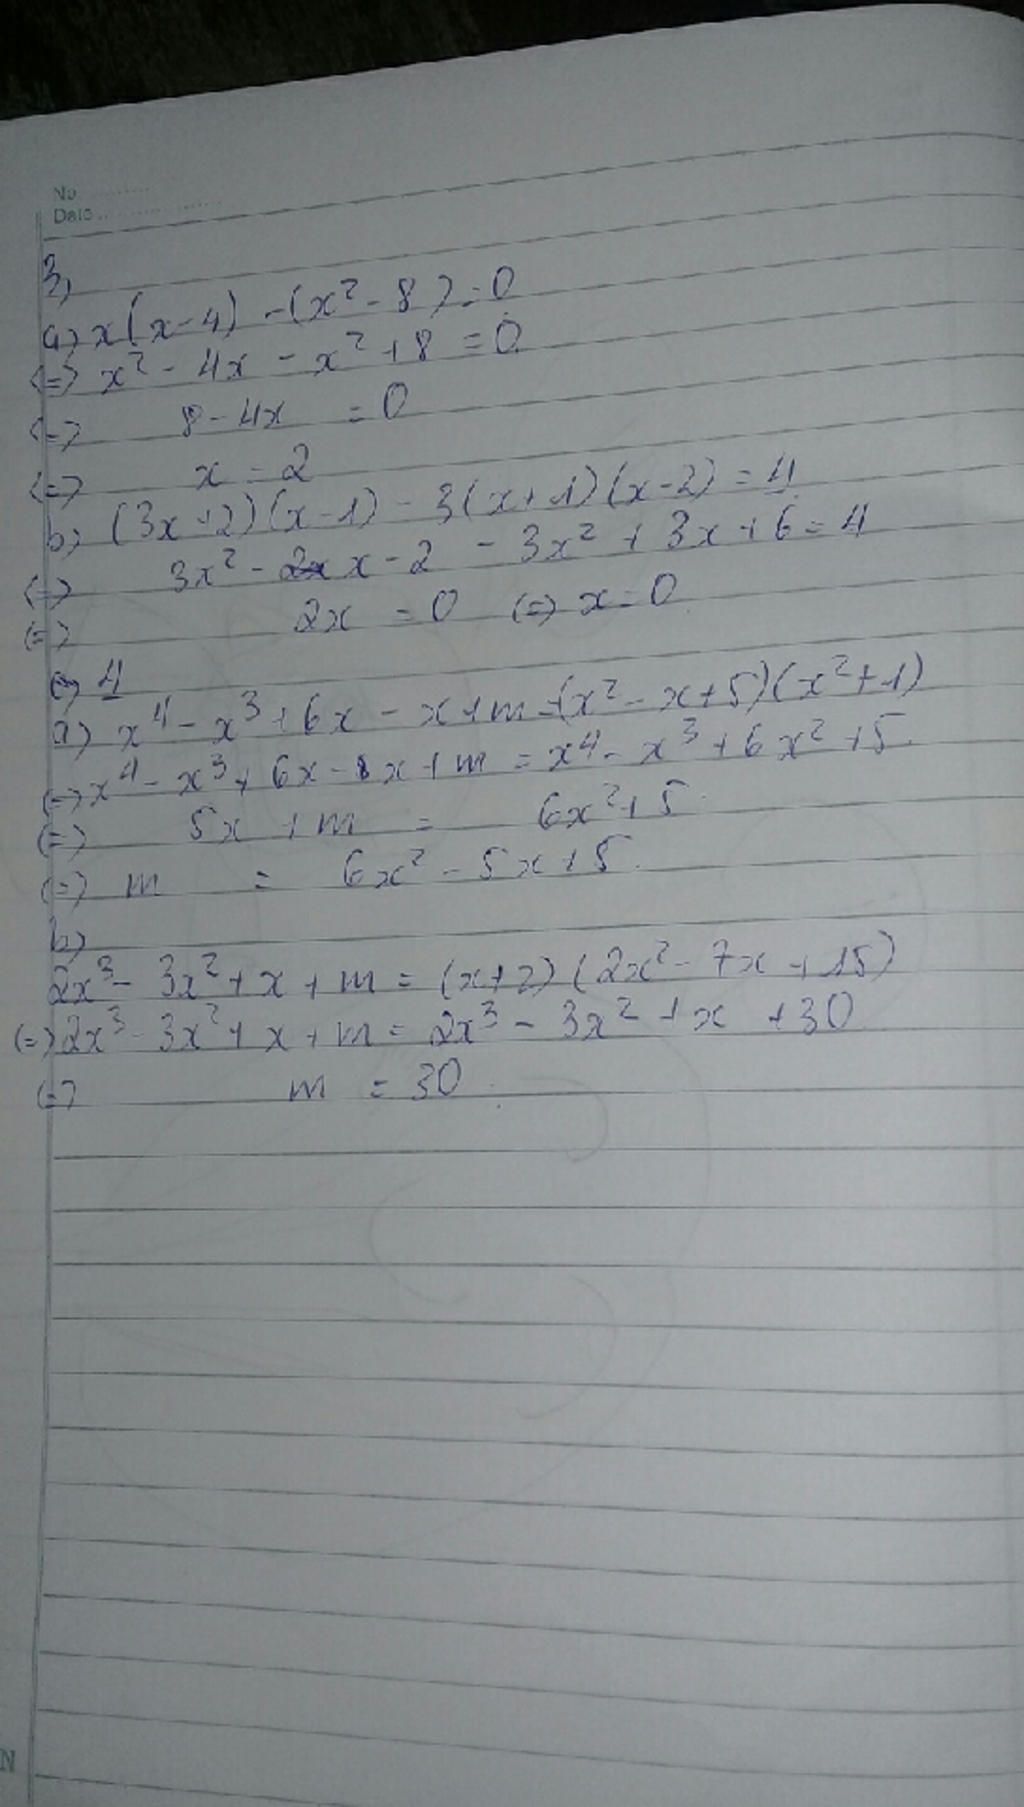 No ..........
Date ....................
3,
a) x(x-4) - (x² - 8) = 0
<=> x² - 4x - x² + 8 = 0
<=> 8 - 4x = 0
<=> x = 2
b) (3x+2)(x-1) - 3(x+1)(x-2) = 4
<=> 3x² - x - 2 - 3x² + 3x + 6 = 4
<=> 2x = 0 <=> x = 0
4
a) x⁴ - x³ + 6x - x + m = (x² - x + 5)(x² + 1)
<=> x⁴ - x³ + 6x - x + m = x⁴ - x³ + 6x² + 5.
<=> 5x + m = 6x² + 5.
<=> m = 6x² - 5x + 5.
b)
2x³ - 3x² + x + m = (x+2)(2x² - 7x + 15)
<=> 2x³ - 3x² + x + m = 2x³ - 3x² + x + 30
<=> m = 30.
N